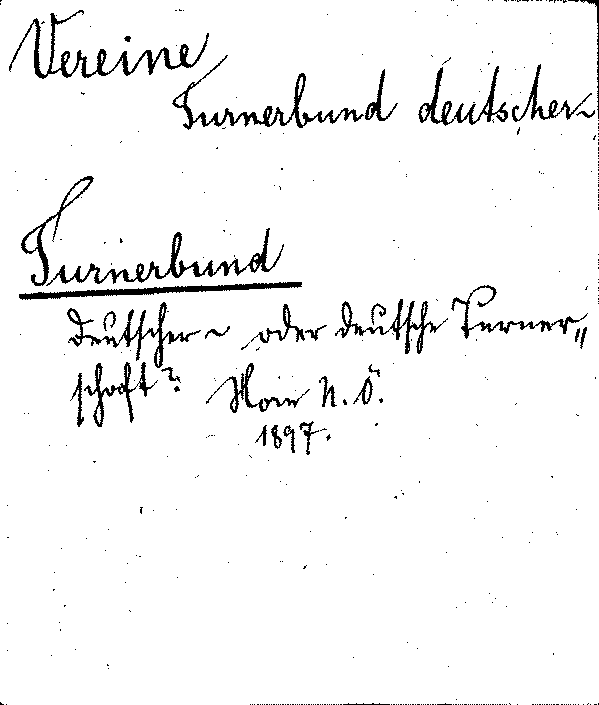 Vereine
Turnerbund deutscher ~
Turnerbund
deutscher ~ oder deutsche Turner„
schaft? N. Ö.
1897.